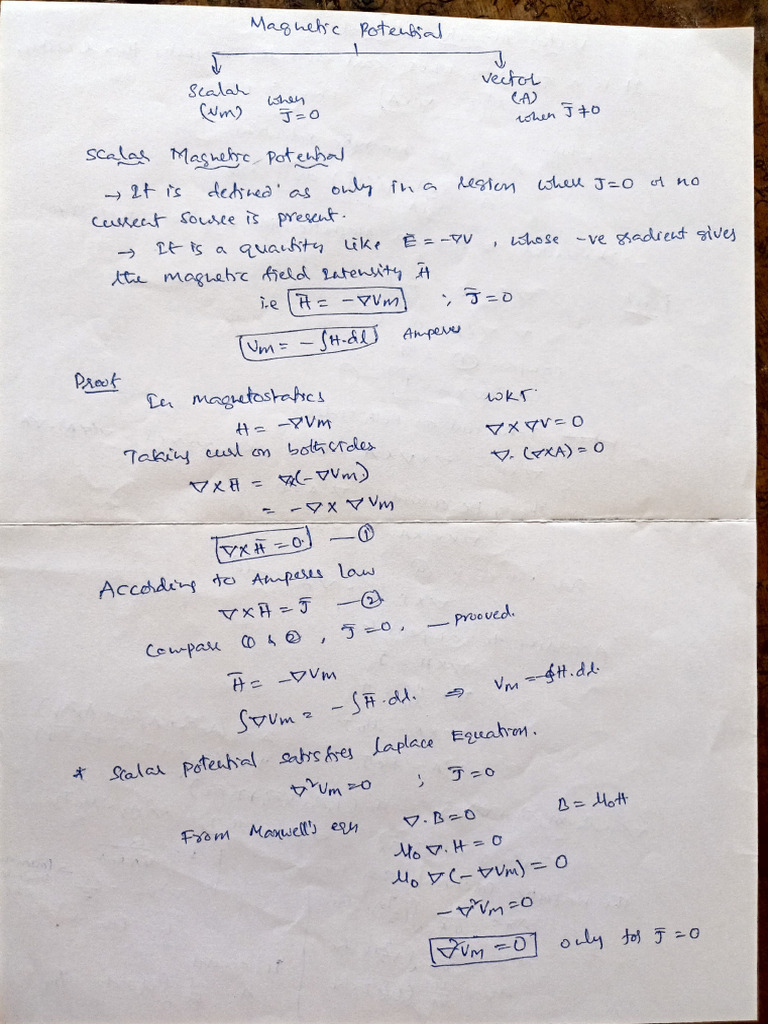 Magnetic Potential
Scalar
(Vm) when J̅=0
vector
(A)
when J̅≠0
Scalar Magnetic Potential
→ It is defined as only in a region when J=0 or no
current source is present.
→ It is a quantity like E̅ = -∇V, whose -ve gradient gives
the magnetic field intensity H̅
i.e H̅ = -∇Vm ; J̅=0
Vm = -∫H.dl Amperes
Proof
In magnetostatics
H = -∇Vm
Taking curl on bothsides
∇×H̅ = ∇×(-∇Vm)
= -∇×∇Vm
∇×H̅ = 0. —①
WKT.
∇×∇V=0
∇.(∇×A)=0
According to Amperes law
∇×H̅ = J̅ —②
Compare ① & ②, J̅=0, — prooved.
H̅ = -∇Vm
∫∇Vm = -∫H̅.dl. ⇒ Vm=-∮H.dl.
* Scalar potential satisfies Laplace Equation.
∇²Vm=0 ; J̅=0
From Maxwell's eqn ∇.B=0 B=μ₀H
μ₀∇.H=0
μ₀∇(-∇Vm)=0
-∇²Vm=0
∇²Vm=0 only for J̅=0